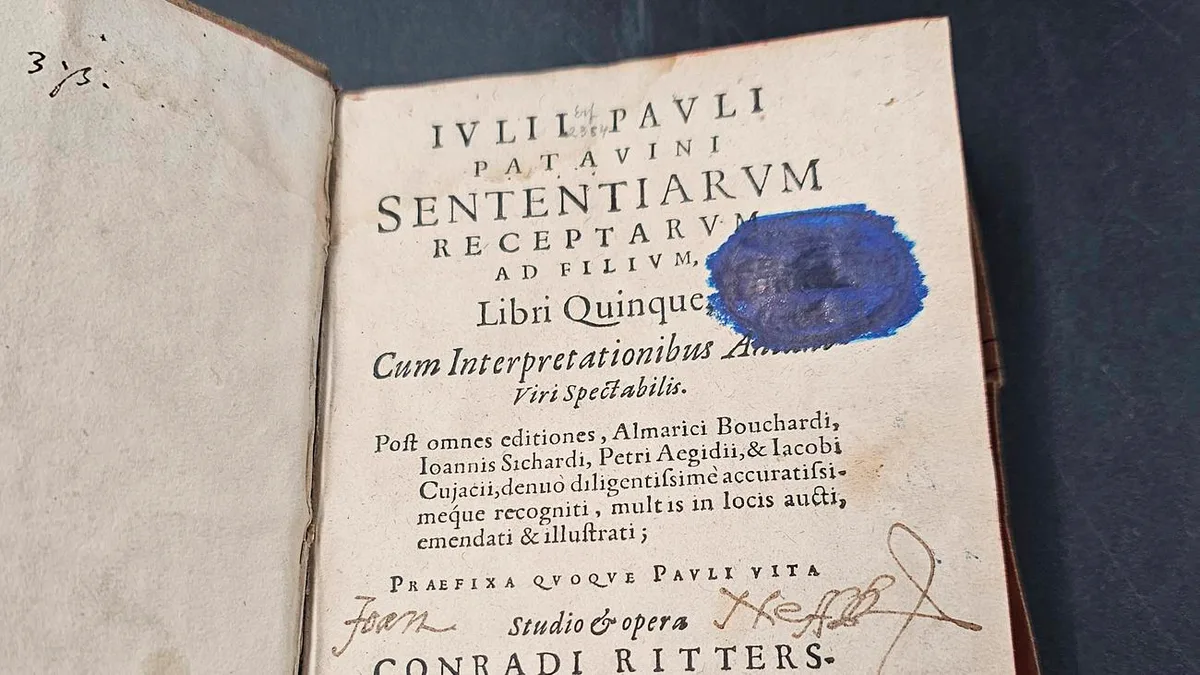 3
IVLII PAVLI
PATAVINI
SENTENTIARVM
RECEPTARVM
AD FILIVM,
Libri Quinque,
Cum Interpretationibus
Viri Spectabilis.
Poſt omnes editiones, Almarici Bouchardi,
Ioannis Sichardi, Petri Aegidii, & Iacobi
Cujacii, denuò diligentiſsimè accuratiſsi-
meq́ue recogniti, multis in locis aucti,
emendati & illuſtrati;
PRAEFIXA QVOQVE PAVLI VITA
Joan
Studio & opera
CONRADI RITTERS-